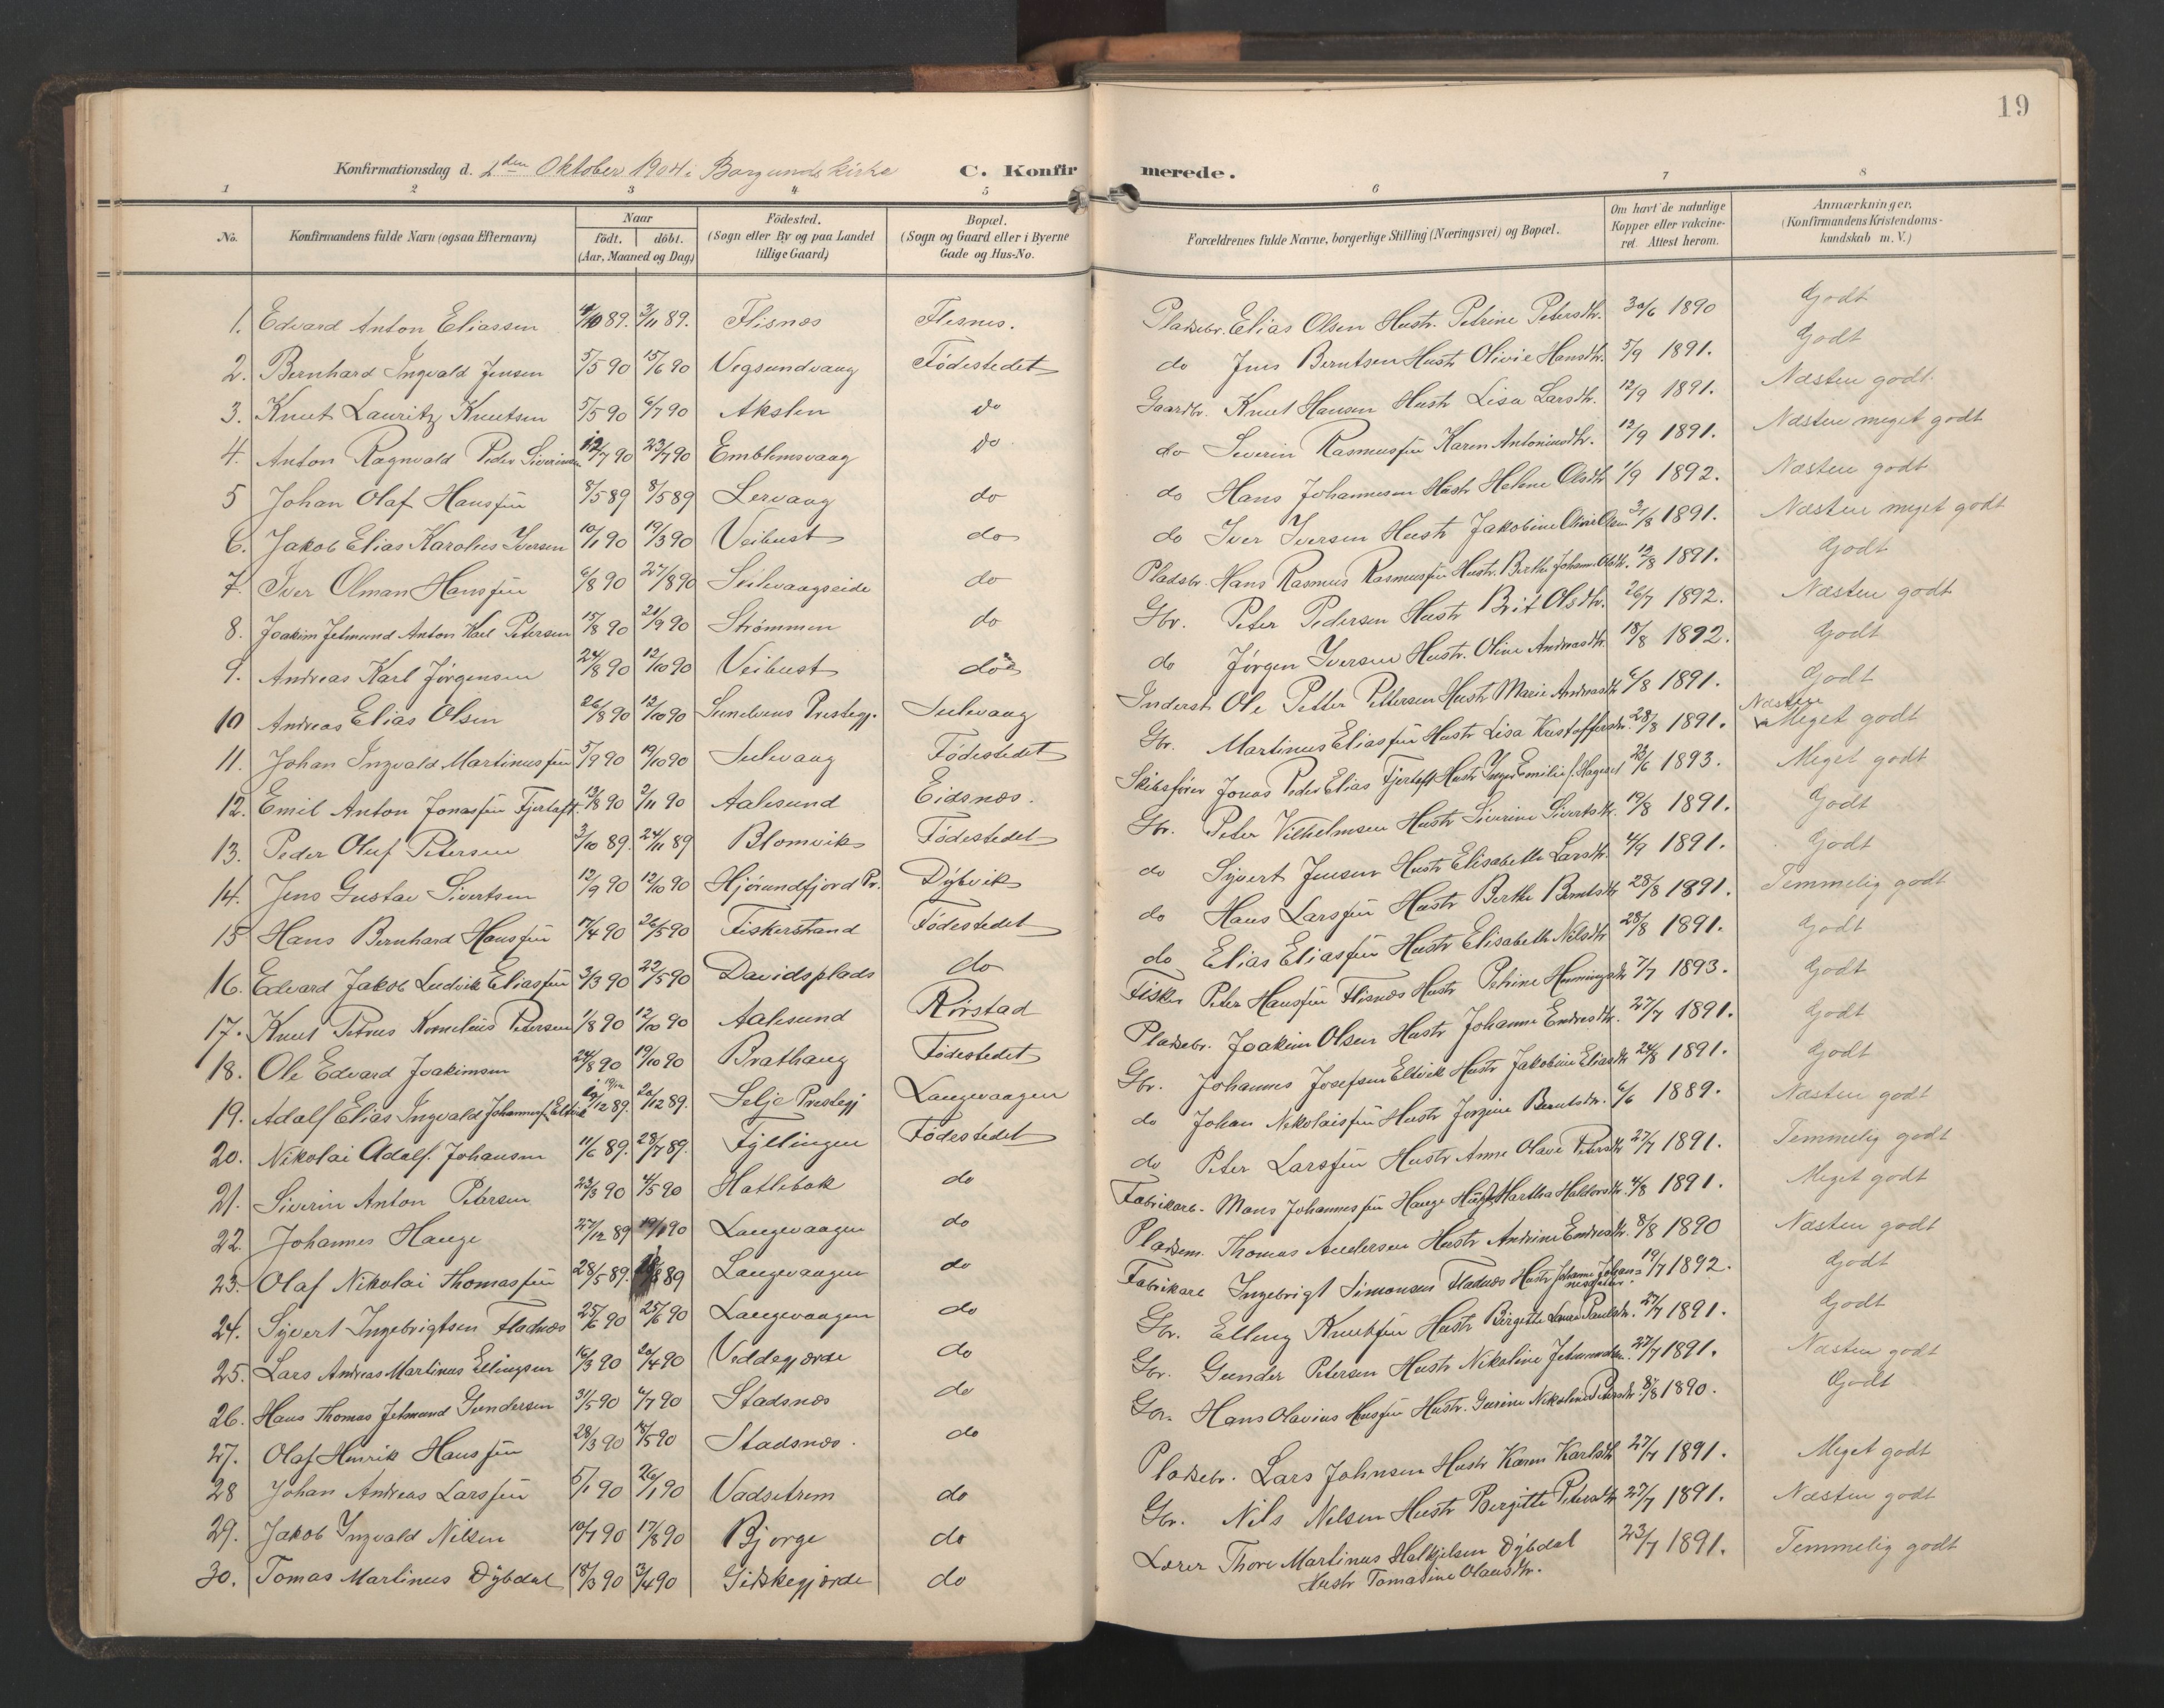 19
Konfirmationsdag d. 2den Oktober 1904 i Borgunds kirke C. Konfirmerede.
1 2 3 4 5 6 7 8
No. Konfirmandens fulde Navn (ogsaa Efternavn) Naar født. døbt. (Aar, Maaned og Dag) Fødested. (Sogn eller By og paa Landet tillige Gaard) Bopæl. (Sogn og Gaard eller i Byerne Gade og Hus-No. Forældrenes fulde Navne, borgerlige Stilling (Næringsvei) og Bopæl. Om havt de naturlige Kopper eller vakcineret. Attest herom. Anmærkninger. (Konfirmandens Kristendomskundskab m. V.)
1. Edvard Anton Eliassen /10 89. 3/11 89. Flisnes Flisnes. Pladsebr. Elias Olsen Hustr. Petrine Petersdtr. 30/6 1890 Godt
2. Bernhard Ingvald Jensen 5/5 90 15/6 90 Vegsundvaag Fødestedet do Jens Berntsen Hustr Olivie Hansdtr. 5/9 1891. Godt
3. Knut Lauritz Knutsen 5/5 90 6/7 90 Akslen do Gaardbr. Knut Hansen Hustr Lisa Larsdtr. 12/9 1891. Næsten godt
4. Anton Ragnvald Peder Siverinsen 12/7 90 23/7 90 Emblemsvaag do do Severin Rasmussen Karen Antoniusdtr. 12/9 1891. Næsten meget godt
5 Johan Olaf Hanssen 8/5 89 8/5 89 Lervaag do do Hans Johannesen Hustr Helene Olsdtr 1/9 1892. Næsten godt
6. Jakob Elias Karolius Iversen 10/1 90 19/3 90 Veibust do do Iver Iversen Hustr Jakobine Olivie Olsen 31/8 1891. Næsten meget godt
7. Iver Olman Hanssen 6/8 90 27/8 90 Seilvaagseide do Pladsbr. Hans Rasmus Rasmussen Hustr. Birthe Johanne Olsdtr. 12/8 1891. Godt
8. Joakim Jetmund Anton Karl Petersen 15/8 90 21/9 90 Strømmen do Gbr. Peter Pedersen Hustr Brit Olsdtr. 26/7 1892. Næsten godt
9. Andreas Karl Jørgensen 24/8 90 12/10 90 Veibust do do Jørgen Iversen Hustr. Oline Andreasdtr. 18/8 1892. Godt
10 Andreas Elias Olsen 26/8 90 12/10 90 Sundvens Prestegj. Sulevaag Inderst Ole Petter Pettersen Hustr Marie Andreasdtr 6/8 1891. Godt
11. Johan Ingvald Martinussen 5/9 90 19/10 90 Sulevaag Fødestedet Gbr. Martinus Eliassen Hustr Lisa Kristoffersdtr. 28/8 1891. Næsten Meget godt
12. Emil Anton Jonassen Fjertoft. 13/8 90 2/11 90 Aalesund Eidsnes. Skibsfører Jonas Peder Elias Fjertoft Hustr Inger Emilie f. Hageset 23/6 1893. Meget godt
13. Peder Oluf Petersen 3/10 89. 24/11 89 Blomvik Fødestedet Gbr. Peter Vilhelmsen Hustr Siverine Sivertsdtr. 19/8 1891. Godt
14. Jens Gustav Sivertsen 12/9 90 12/10 90 Hjørundfjord Pr. Dybvik do Syvert Jensen Hustr Elisabeth Larsdtr. 4/9 1891. Godt
15 Hans Bernhard Hanssen 17/4 90 26/5 90 Fiskerstrand Fødestedet do Hans Larssen Hustr Berthe Berntsdtr 28/8 1891. Temmelig godt
16. Edvard Jakob Ludvik Eliassen 3/3 90 22/5 90 Davidsplads do do Elias Eliassen Hustr Elisabeth Nilsdtr 28/8 1891. Godt
17. Knut Petrus Kornelius Petersen 1/8 90 12/10 90 Aalesund Rørstad Fisker Peter Hanssen Flisnes Hustr Petrine Henningsdtr 7/7 1893. Godt
18. Ole Edvard Joakimsen 24/8 90 19/10 90 Brathaug Fødestedet Pladsebr. Joakim Olsen Hustr Johanne Endresdtr. 27/7 1891. Godt
19. Adolf Elias Ingvald Johannesen Eltvik /12 89. 20/12 89. Selje Prestegj Langevaagen Gbr. Johannes Josefsen Eltvik Hustr Jakobine Eliasdtr 24/8 1891. Godt
20. Nikolai Adolf. Johansen 11/6 89. 28/7 89. Fyllingen Fødestedet do Johan Nikolaissen Hustr Jorgine Berntsdtr. 6/6 1889. Næsten godt
21. Siverin Anton Petersen 23/3 90 4/5 90 Hatlebak do do Peter Larssen Hustr Anne Olave Petersdtr 27/7 1891. Temmelig godt
22. Johannes Hauge 27/12 89 19/1 90 Langevaagen do Fabrikarb. Mons Johannessen Hauge Hustr Martha Haldorsdtr. 4/8 1891. Meget godt
23. Olaf Nikolai Thomassen 28/5 89. /8 89 Langevaagen do Pladsem. Thomas Andersen Hustr Andrine Endresdtr. 8/8 1890 Næsten godt
24. Syvert Ingebrigtsen Fladnes 25/6 90 25/6 90 Langevaagen do Fabrikarb Ingebrigt Simonsen Fladnes Hustr Johanne Johannesdatter. 19/7 1892. Godt
25. Lars Andreas Martinus Ellingsen 16/3 90 20/4 90 Veddegjerde do Gbr. Elling Knutsen Hustr Birgitte Laura Paulsdtr. 27/7 1891. Godt
26. Hans Thomas Jetmund Gundersen 31/5 90 6/7 90 Stadsnes do Gbr. Gunder Petersen Hustr Nikoline Jetmundsdtr. 27/7 1891. Næsten godt
27. Olaf Henrik Hanssen 28/3 90 18/5 90 Stadsnes. do Gbr. Hans Olavius Hanssen Hustr. Gurine Nikoline Petersdtr. 8/8 1890. Godt
28 Johan Andreas Larssen 5/1 90 26/1 90 Vadsetrem do Pladsebr. Lars Johnsen Hustr Karen Karlsdtr 27/7 1891. Meget godt
29. Jakob Ingvald Nilsen 10/7 90 17/8 90 Bjørge do Gbr. Nils Nilsen Hustr Bergitte Petersdtr 27/7 1891. Næsten godt
30. Tomas Martinus Dybdal 18/3 90 3/4 90 Gidskegjerde do Lærer Thore Martinus Halkjelsen Dybdal 23/7 1891. Temmelig godt
Hustr Tomasine Olausdtr.